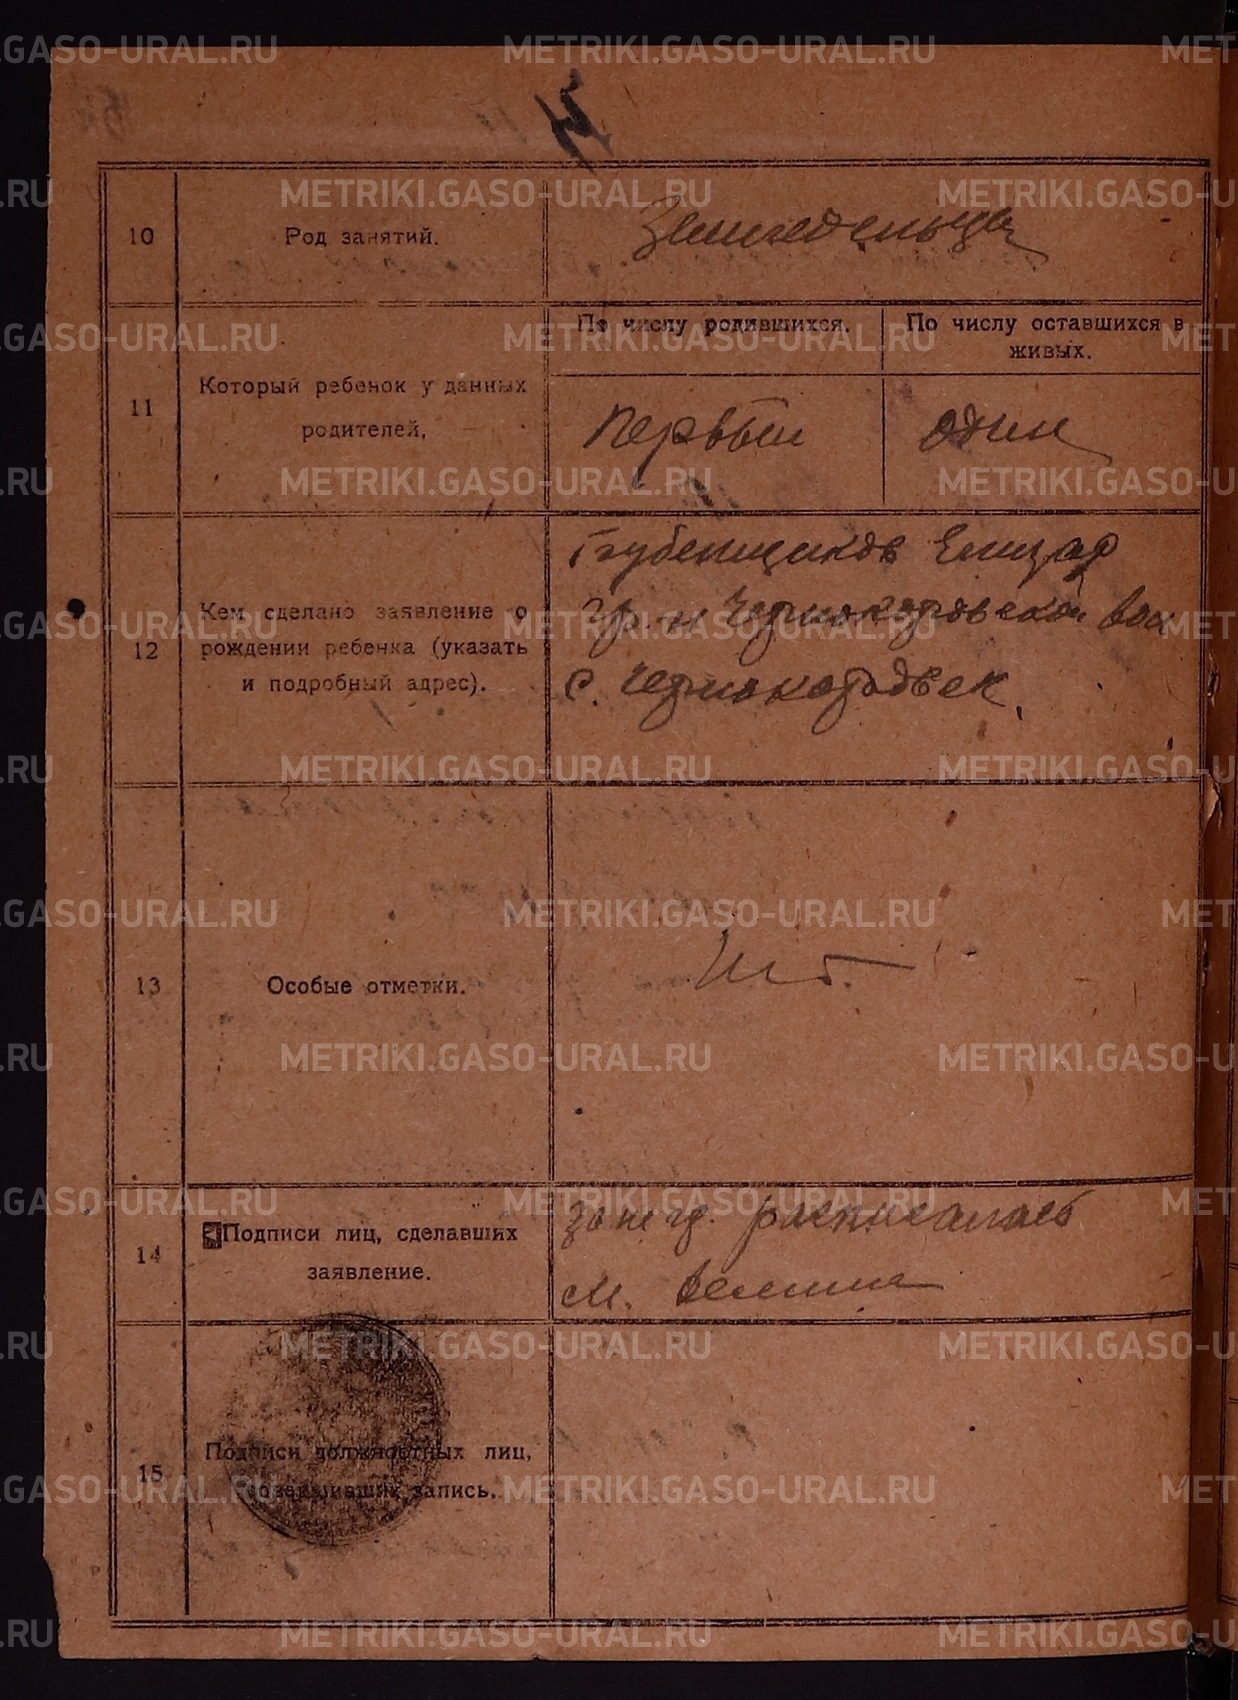 METRIKI.GASO-URAL.RU
10
Род занятий.
Земледельцы
11
Который ребенок у данных
родителей.
По числу родившихся.
По числу оставшихся в
живых.
Первый
один
12
Кем сделано заявление о
рождении ребенка (указать
и подробный адрес).
Трубенщиков Елизар
гр-н Черноковской вол
с. Черно
13
Особые отметки.
Нет.
14
Подписи лиц, сделавших
заявление.
за негр. расписалась
М.
15
Подписи должностных лиц,
совершивших запись.